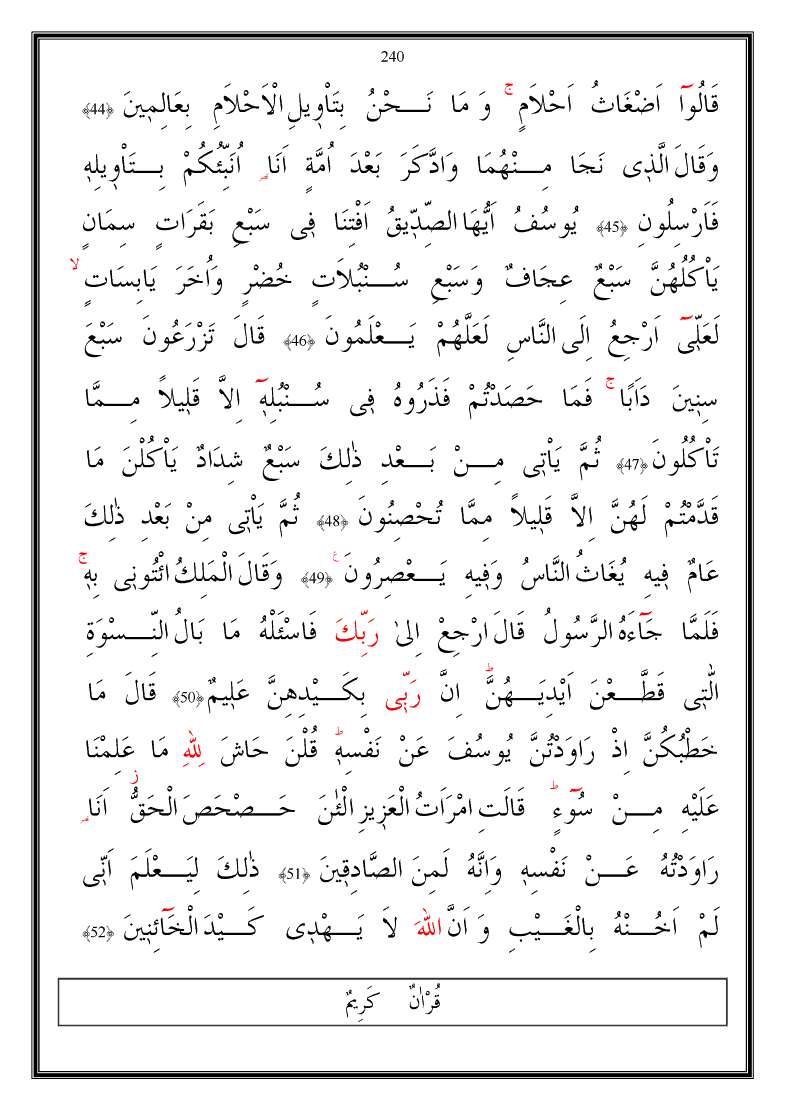 240
قَالُوٓا اَضْغَاثُ اَحْلاَمٍ ۚ وَ مَا نَحْنُ بِتَاْوٖيلِ الْاَحْلاَمِ بِعَالِمٖينَ ﴿44﴾
وَقَالَ الَّذٖى نَجَا مِنْهُمَا وَادَّكَرَ بَعْدَ اُمَّةٍ اَنَا۬ اُنَبِّئُكُمْ بِتَاْوٖيلِهٖ
فَاَرْسِلُونِ ﴿45﴾ يُوسُفُ اَيُّهَا الصِّدّٖيقُ اَفْتِنَا فٖى سَبْعِ بَقَرَاتٍ سِمَانٍ
يَاْكُلُهُنَّ سَبْعٌ عِجَافٌ وَسَبْعِ سُنْبُلاَتٍ خُضْرٍ وَاُخَرَ يَابِسَاتٍ ۙ
لَعَلّٖٓى اَرْجِعُ اِلَى النَّاسِ لَعَلَّهُمْ يَعْلَمُونَ ﴿46﴾ قَالَ تَزْرَعُونَ سَبْعَ
سِنٖينَ دَاَبًا ۚ فَمَا حَصَدْتُمْ فَذَرُوهُ فٖى سُنْبُلِهٖٓ اِلاَّ قَلٖيلاً مِمَّا
تَاْكُلُونَ ﴿47﴾ ثُمَّ يَاْتٖى مِنْ بَعْدِ ذٰلِكَ سَبْعٌ شِدَادٌ يَاْكُلْنَ مَا
قَدَّمْتُمْ لَهُنَّ اِلاَّ قَلٖيلاً مِمَّا تُحْصِنُونَ ﴿48﴾ ثُمَّ يَاْتٖى مِنْ بَعْدِ ذٰلِكَ
عَامٌ فٖيهِ يُغَاثُ النَّاسُ وَفٖيهِ يَعْصِرُونَ ع ﴿49﴾ وَقَالَ الْمَلِكُ ائْتُونٖى بِهٖ ۚ
فَلَمَّا جَٓاءَهُ الرَّسُولُ قَالَ ارْجِعْ اِلٰى رَبِّكَ فَاسْئَلْهُ مَا بَالُ النِّسْوَةِ
الّٰتٖى قَطَّعْنَ اَيْدِيَهُنَّ ؕ اِنَّ رَبّٖى بِكَيْدِهِنَّ عَلٖيمٌ ﴿50﴾ قَالَ مَا
خَطْبُكُنَّ اِذْ رَاوَدْتُنَّ يُوسُفَ عَنْ نَفْسِهٖ ؕ قُلْنَ حَاشَ لِلّٰهِ مَا عَلِمْنَا
عَلَيْهِ مِنْ سُٓوءٍ ؕ قَالَتِ امْرَاَتُ الْعَزٖيزِ الْئٰنَ حَصْحَصَ الْحَقُّ ز اَنَا۬
رَاوَدْتُهُ عَنْ نَفْسِهٖ وَاِنَّهُ لَمِنَ الصَّادِقٖينَ ﴿51﴾ ذٰلِكَ لِيَعْلَمَ اَنّٖى
لَمْ اَخُنْهُ بِالْغَيْبِ وَ اَنَّ اللّٰهَ لاَ يَهْدٖى كَيْدَ الْخَٓائِنٖينَ ﴿52﴾
قُرْاٰنٌ كَرٖيمٌ